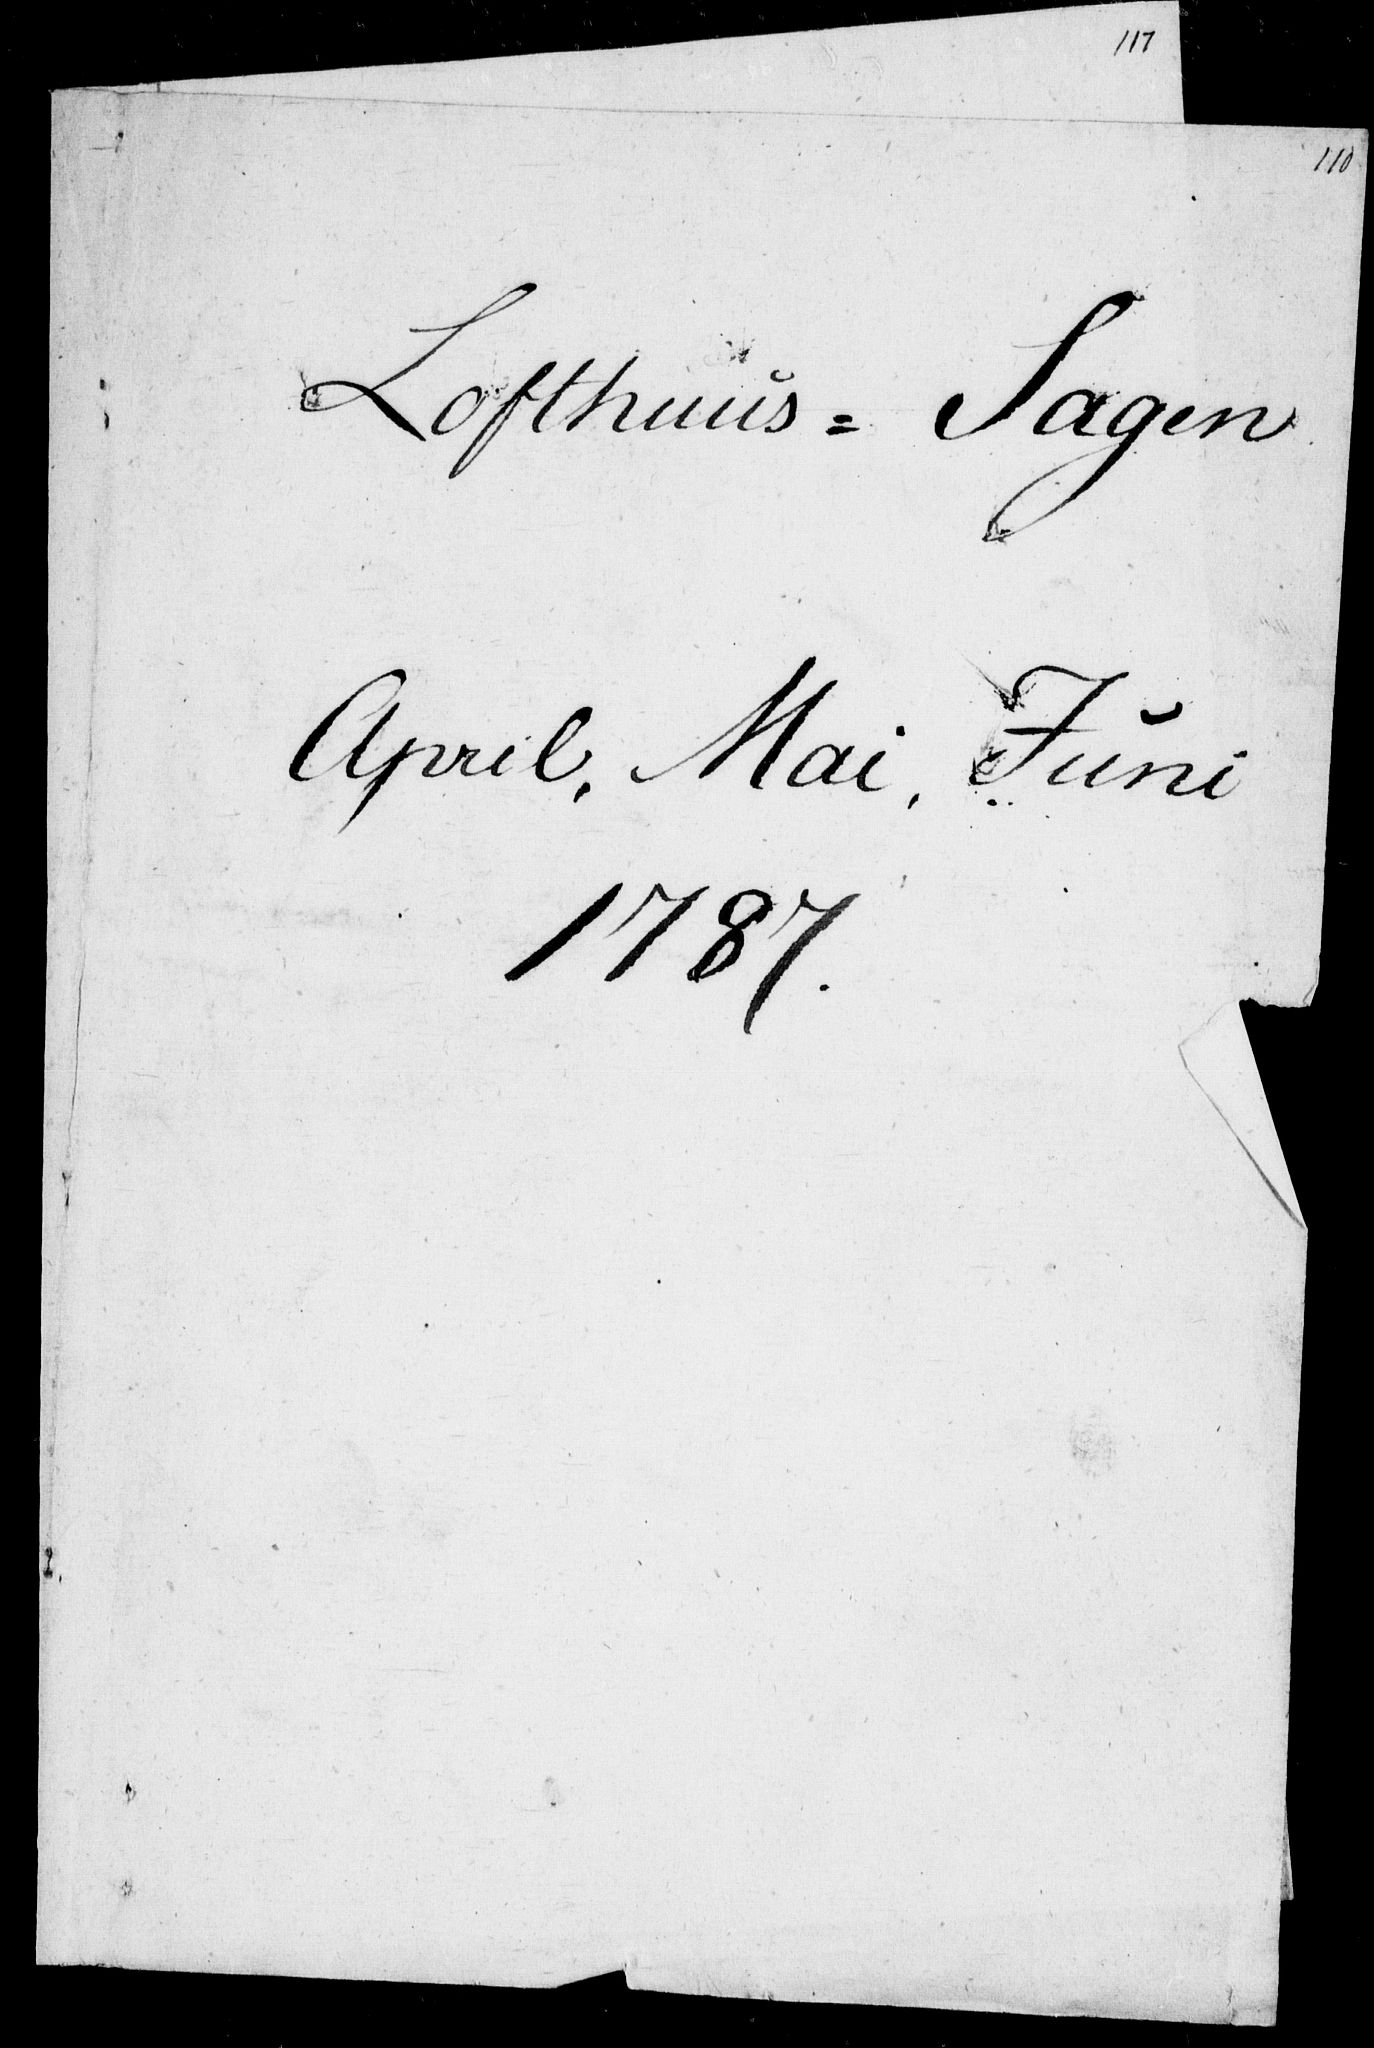 117
110
Lofthuus = Sagen
April, Mai, Juni
1787.